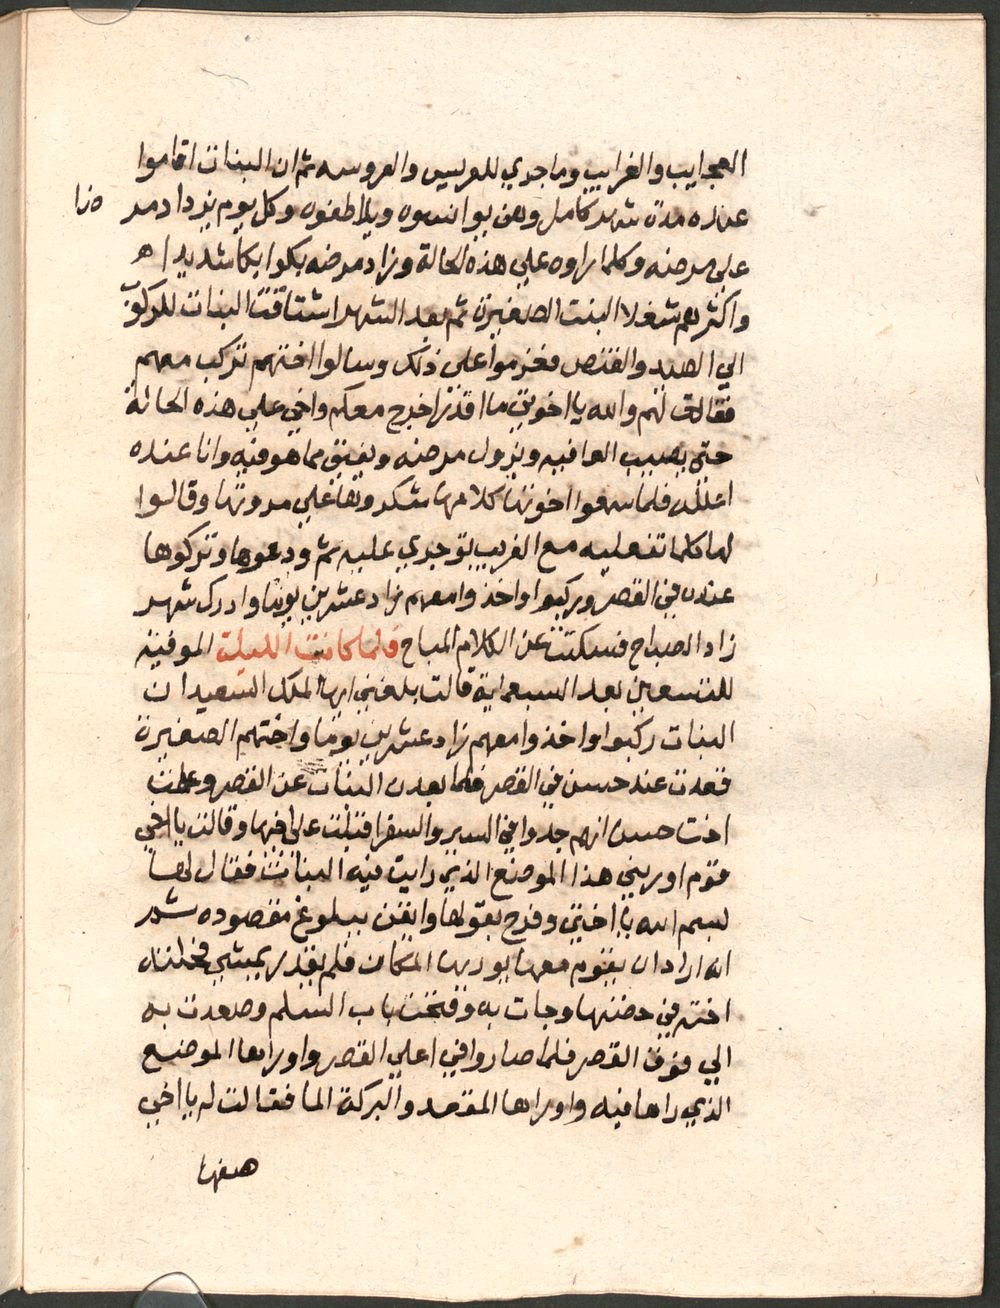 العجايب والغرايب وما جري للعريس والعروسه ثم ان البنات اقاموا
عنده مدة شهر كامل وهن يوانسوه ويلاطفوه وكل يوم يزداد مر
ضا
علي مرضه وكلما راوه علي هذه الحالة وزاد مرضه بكوا بكا شديدا ه
واكثرهم شغلا البنت الصغيرة ثم بعد الشهر اشتاقت البنات للركوب
الي الصيد والقنص فعزموا علي ذلك وسالوا اختهم تركب معهم
فقالت لهم والله يا اخوتي ما اقدر اخرج معكم واخي علي هذه الحالة
حتي يصيب العافيه ويزول مرضه ويفيق مما هو فيه وانا عنده
اعلله فلما سمعوا اخوتها كلامها شكروها علي مروتها وقالوا
لها كلما تفعليه مع الغريب توجري عليه ثم ودعوها وتركوها
عنده في القصر وركبوا واخذوا معهم زاد عشرين يوما وادرك شهر
زاد الصباح فسكتت عن الكلام المباح فلما كانت الليلة الموفية
للتسعين بعد السبعماية قالت بلغني ايها الملك السعيد ان
البنات ركبوا واخذوا معهم زاد عشرين يوما واختهم الصغيرة
قعدت عند حسن في القصر فلما بعدت البنات عن القصر وعلمت
اخت حسن انهم جدوا في السير والسفر اقبلت علي اخيها وقالت يا اخي
قوم اوريني هذا الموضع الذي رايت فيه البنات فقال لها
بسم الله يا اختي وفرح بقولها وايقن ببلوغ مقصوده ثم
انه اراد ان يقوم معها يوريها المكان فلم يقدر يمشي فحملته
اخته في حضنها وجات به وفتحت باب السلم وصعدت به
الي فوق القصر فلما صاروا في اعلي القصر واوراها الموضع
الذي راها فيه واوراها المقعد والبركة الما فقالت له يا اخي
صفها